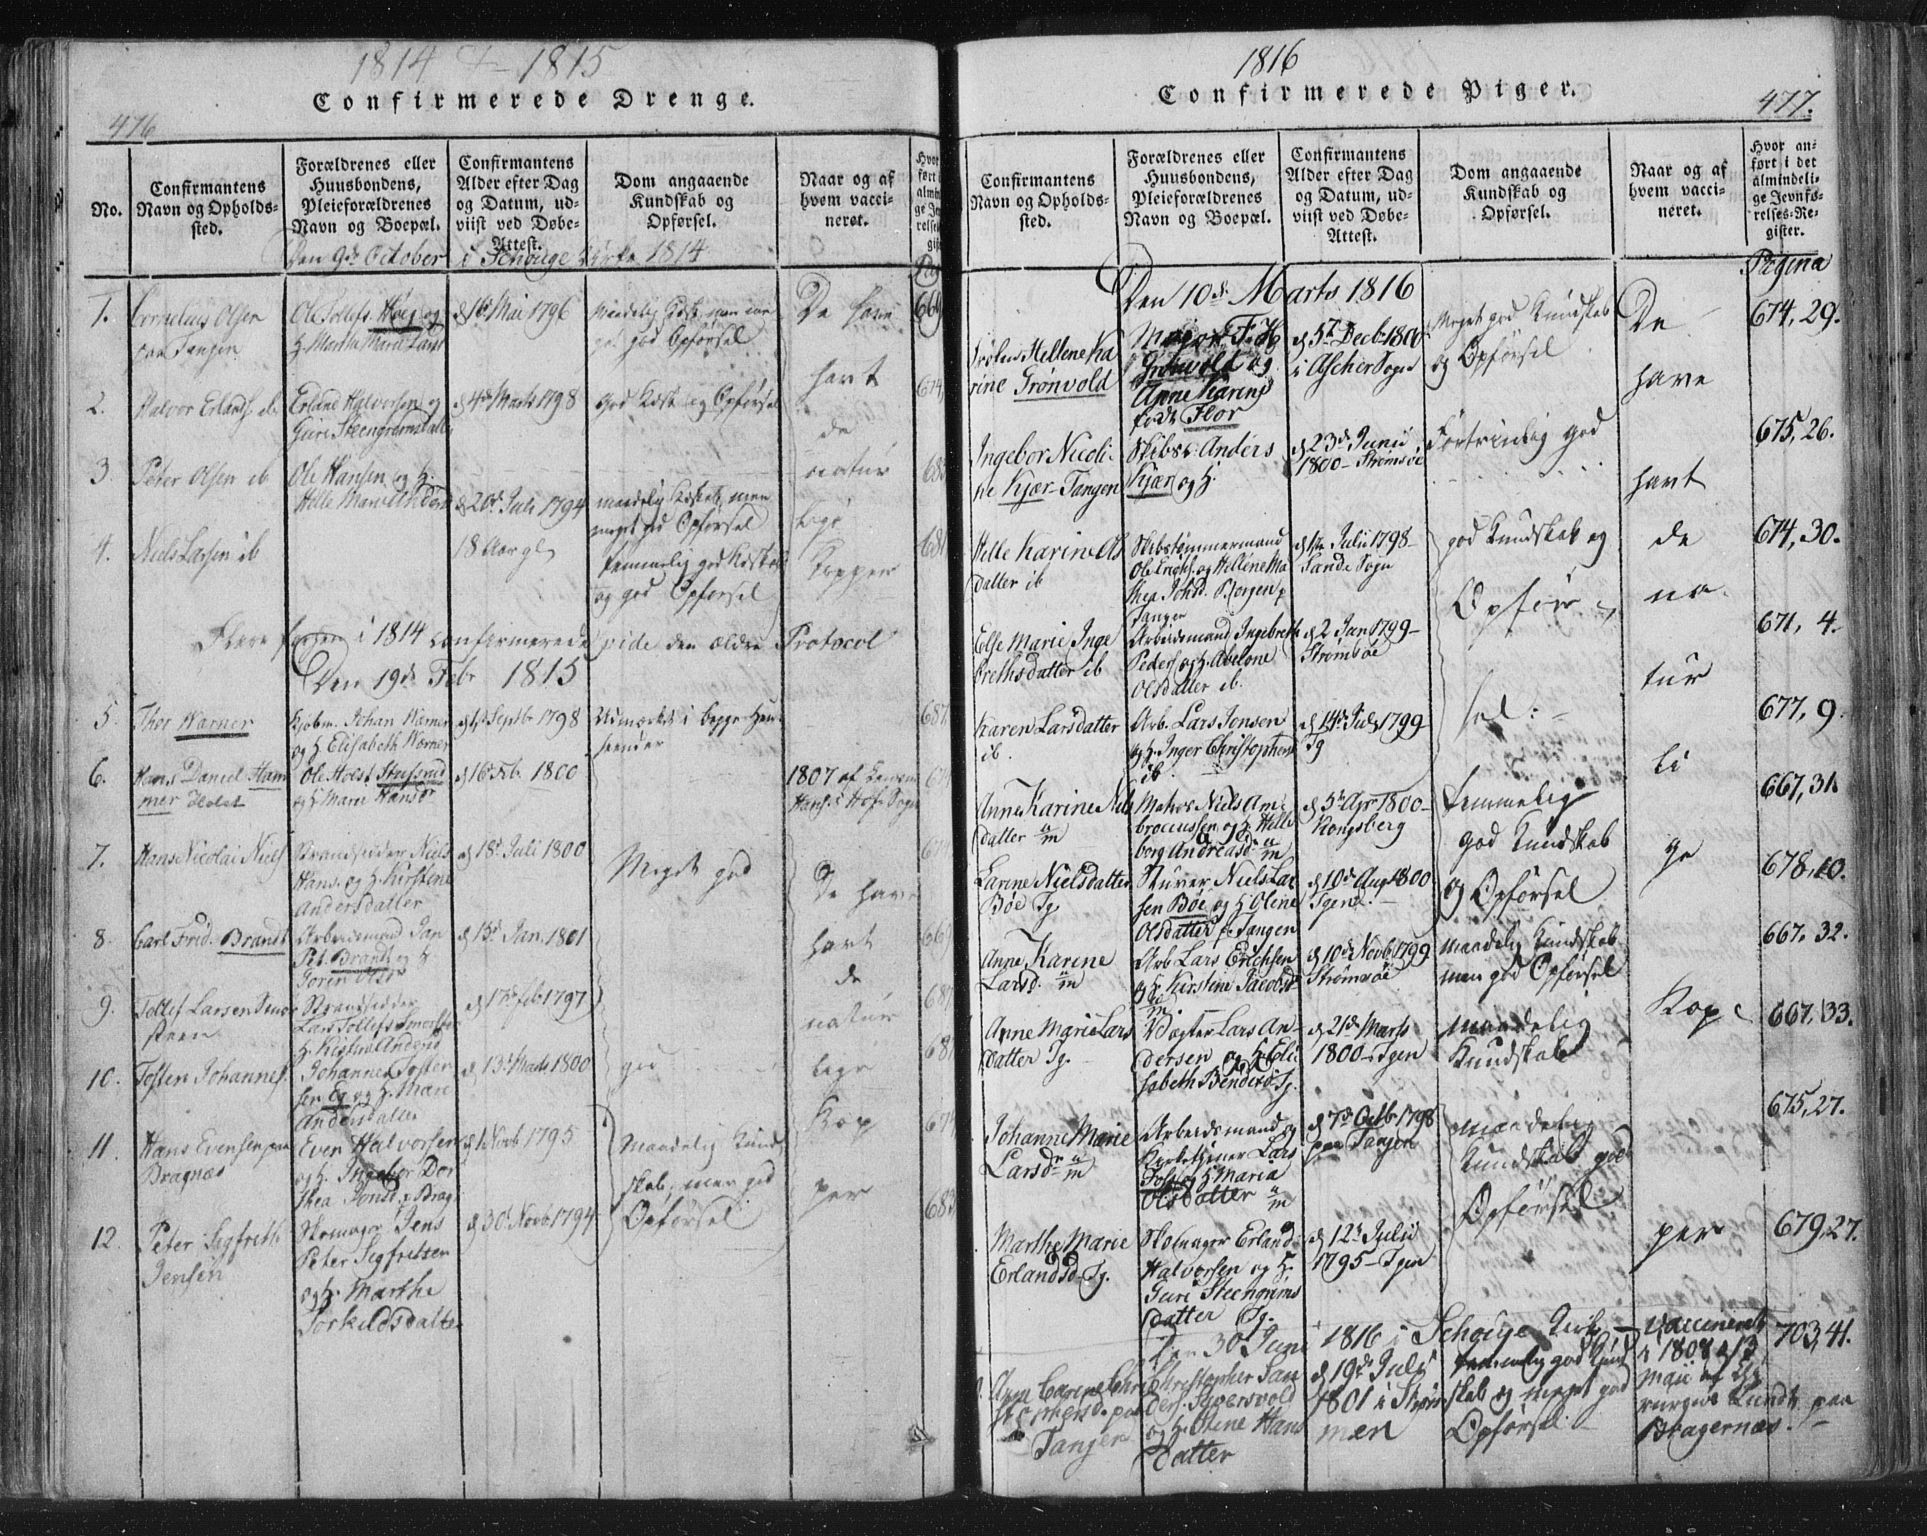 1814 & 1815
Confirmerede Drenge.
476
No.
Confirmantens
Navn og Opholds-
sted.
Forældrenes eller
Huusbondens,
Pleieforældrenes
Navn og Boepæl.
Confirmantens
Alder efter Dag
og Datum, ud-
viist ved Døbe-
Attest.
Dom angaaende
Kundskab og
Opførsel.
Naar og af
hvem vacci-
neret.
Den 9de October i Schouge Kirke 1814
1.
Cornelius Olsen
paa Tangen
Ole Tollefs. Høeg og
d 16de Mai 1796
god Opførsel
De have
669
2.
Halvor Erlands. ib
Erland Halvorsen og
Guri Steengrimsdatter
d 4de Marts 1798
god Kdsk og Opførsel
havt
674
3.
Peter Olsen ib
Ole Hansen og H.
d 20de Juli 1794
maadelig Kdskb, men
meget god Opførsel
de
natur
lige
4.
Niels Larsen ib
18 Aar gl
temmelig god Kdskab
og god Opførsel
Kopper
681
Flere forhen i 1814 confirmerede vide den ældre Protocol
Den 19de Febr 1815
5.
Thor Warner
Kjøbm. Johan Warner
og H Elisabeth Worner
d 4de Septb 1798
Udmærket i begge Hen-
seender
687
6.
Hans Daniel Ham
mer Holst
Ole Holst Stufsrud
og H Marie Hansd
d 16de Feb. 1800
1807 af
Hans i Hof Sogn
674
7.
Hans Nicolai Niels
Strandsidder Niels
Hans. og H. Kirstine
Andersdatter
d 18de Juli 1800
Meget god
De have
8.
Carl Frid. Brandt
Arbeidsmand Jan
Pet. Brandt og H
Goren Olsd
d 15de Jan. 1801
havt
de
9.
Tollef Larsen Smør
steen
Strandsidder
Lars Tollefs Smørste
H. Kirstin Andersd
d 17de Feb 1797
natur
687
10.
Tosten Johannes.
Johannes Toster
sen Eg og H. Mare
Andersdatter
d 13de Marts 1800
god
lige
681
11.
Hans Evensen paa
Bragnæs
Even Halvorsen
og H. Ingebor Dor
thea Jonsd. p Brag
d 1 Novb 1795
Maadelig Kund
skab, men god
Opførsel
Kop
per
674
12.
Peter Sigfrith
Jensen
Skomager Jens
Peter Sigfritsen
og H. Marthe
Torkildsdatter
d 30 Novb 1794
683
1816
Confirmerede Piger.
477.
Confirmantens
Navn og Opholds-
sted.
Forældrenes eller
Huusbondens,
Pleieforældrenes
Navn og Boepæl.
Confirmantens
Alder efter Dag
og Datum, ud-
viist ved Døbe-
Attest.
Dom angaaende
Kundskab og
Opførsel.
Naar og af
hvem vacci-
neret.
Hvor an-
ført i det
almindeli-
ge Jevnfø-
relses-Re-
gister.
Pagina
Den 10de Marts 1816
Frøken Hellene Ka
rine Grønvold
Major F. H
Grønvold og
Anne Karine
født Flor
d 5te Decb 1800
i Ascher Sogn
Meget god Kundskab
og Opførsel
De
674, 29.
Ingebor Nicoli-
ne Kjær - Tangen
Skibsc. Anders
Kjær og H.
d 23de Junii
1800 - Strømsøe
Fortrinlig god
have
havt
675, 26.
Helle Karine Ols
datter ib
Skibstømmermand
Ole Engls. og Hellene Ma
thea Johsd. Borgen p
Tangen
d 1te Juli 1798
Sande Sogn
god Kundskab og
Opfør
de
674, 30.
Else Marie Inge
brethsdatter ib
Arbeidsmand Ingebreth
Peders. og H. Abelone
Olsdatter ib.
d 2 Jan 1799
Strømsøe
na-
671, 4.
Karen Larsdatter
ib.
Arb. Lars Jensen
og H. Inger Christophersd
ib
d 14de Juli 1799
Tg
sel:
tur
677, 9.
Anne Karine Niels
datter
Matros Niels Am
brociussen og H Helle
borg Andreasd.
d 5te Apr 1800
Kongsberg
temmelig
god Kundskab
og Opførsel
li
667, 31.
Larine Nielsdatter
Böe Tg
Niels Lar
sen Böe og H Oline
Olsdatter p Tangen
d 10de Aug 1800
Tgen
ge
678, 10.
Anne Karine
Larsd.
Arb Lars Erichsen
og H Kirstine Jacobsd
d 10de Novb 1799
Strømsøe
maadelig Kundskab
men god Opførsel
667, 32.
Anne Marie Lars
datter Tg.
Vægter Lars An-
dersen og H Eli
sabeth Bendixsd Tg.
d 21de Marts
1800 - Tgen
maadelig
Kundskab
Kop
667, 33.
Johanne Marie
Larsdr
Arbeidsmand og
Lars
Tofs og H Maria
Olsdatter
d 7de Octb 1798
paa Tangen
maadelig
Kundskab god
Opførsel
675, 27.
Marthe Marie
Erlandsd. Tg.
Skomager Erland
Halvorsen og H.
Guri Steengrims
datter Tg.
d 12te Julii
1795 - Tgen
per
679, 27.
Den 30 Juni 1816 i Schouge Kirke
Christopher Jan
ders. Syversvold
og H. Stine Hans
datter
Tangen
d 19de Julii
1801 i Strøm
men
temmelig god Kund
skab og meget god
Opførsel
vaccineret
1808 d 13
Maii af Chi
rurgus Lundt paa
Bragernæs.
703, 41.